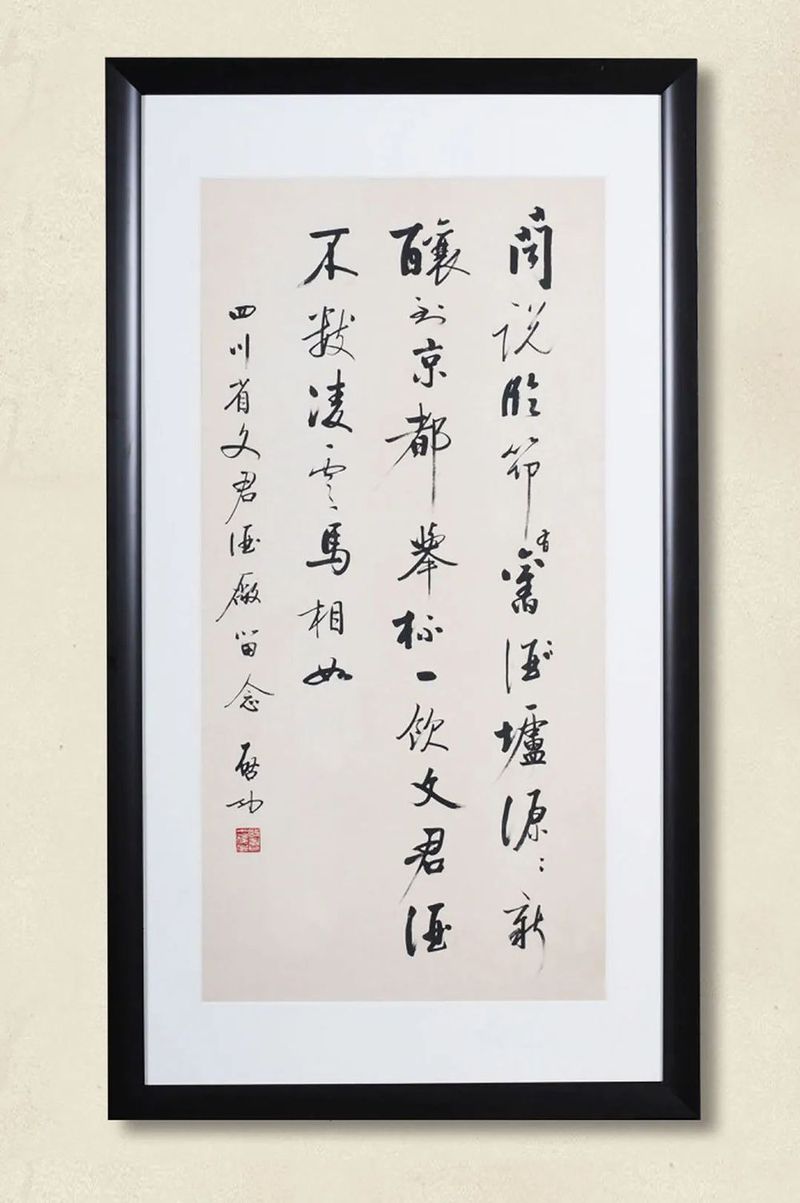 聞说临邛有舊酒壚源〻新
釀到京都舉杯一飲文君酒
不數凌雲馬相如
四川省文君酒廠留念 啓功